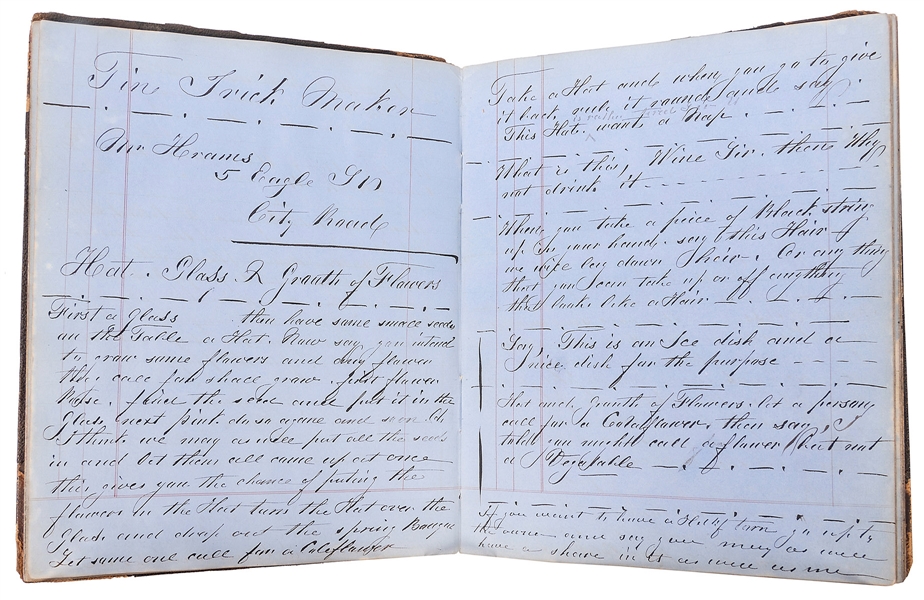 Tin Trick Maker
Mr Hrams
5 Eagle St
City Road
Hat. Glass & Grauth of Flowers
First a Glass then have some smace seeds
on the Table a Hat. Now say you intend
to craw some flowers and any flower
they cace for shace grow. first flower
Rose. find the seed and put it in the
Glass next pink do so agane and soon
I think we may as wee put all the seeds
in and let them all came up at once
this gives you the chance of puting the
flowers in the Hat turn the Hat over the
Glass and drop out the spring
Get some one call for a Coleflower
Take a Hat and when you go to give
it back rub it round and say
This Hat wants a Nap.
What is this, Wine Sir. then Why
not drink it
When you take a piece of Black string
up in your hand. say this Hair
we wife lay down hair. Or any thing
that you can take up or off anything
that looks like a Hair
Say, This is an Ice dish and a
Nice dish for the purpose
Hat and Grauth of Flowers. let a person
call for a Coleflower, then say, I
told you might call a flower but not
a Vegatable
If you want to have a Hat go up to
the owner and say you may as wee
have a share in it as wee as me